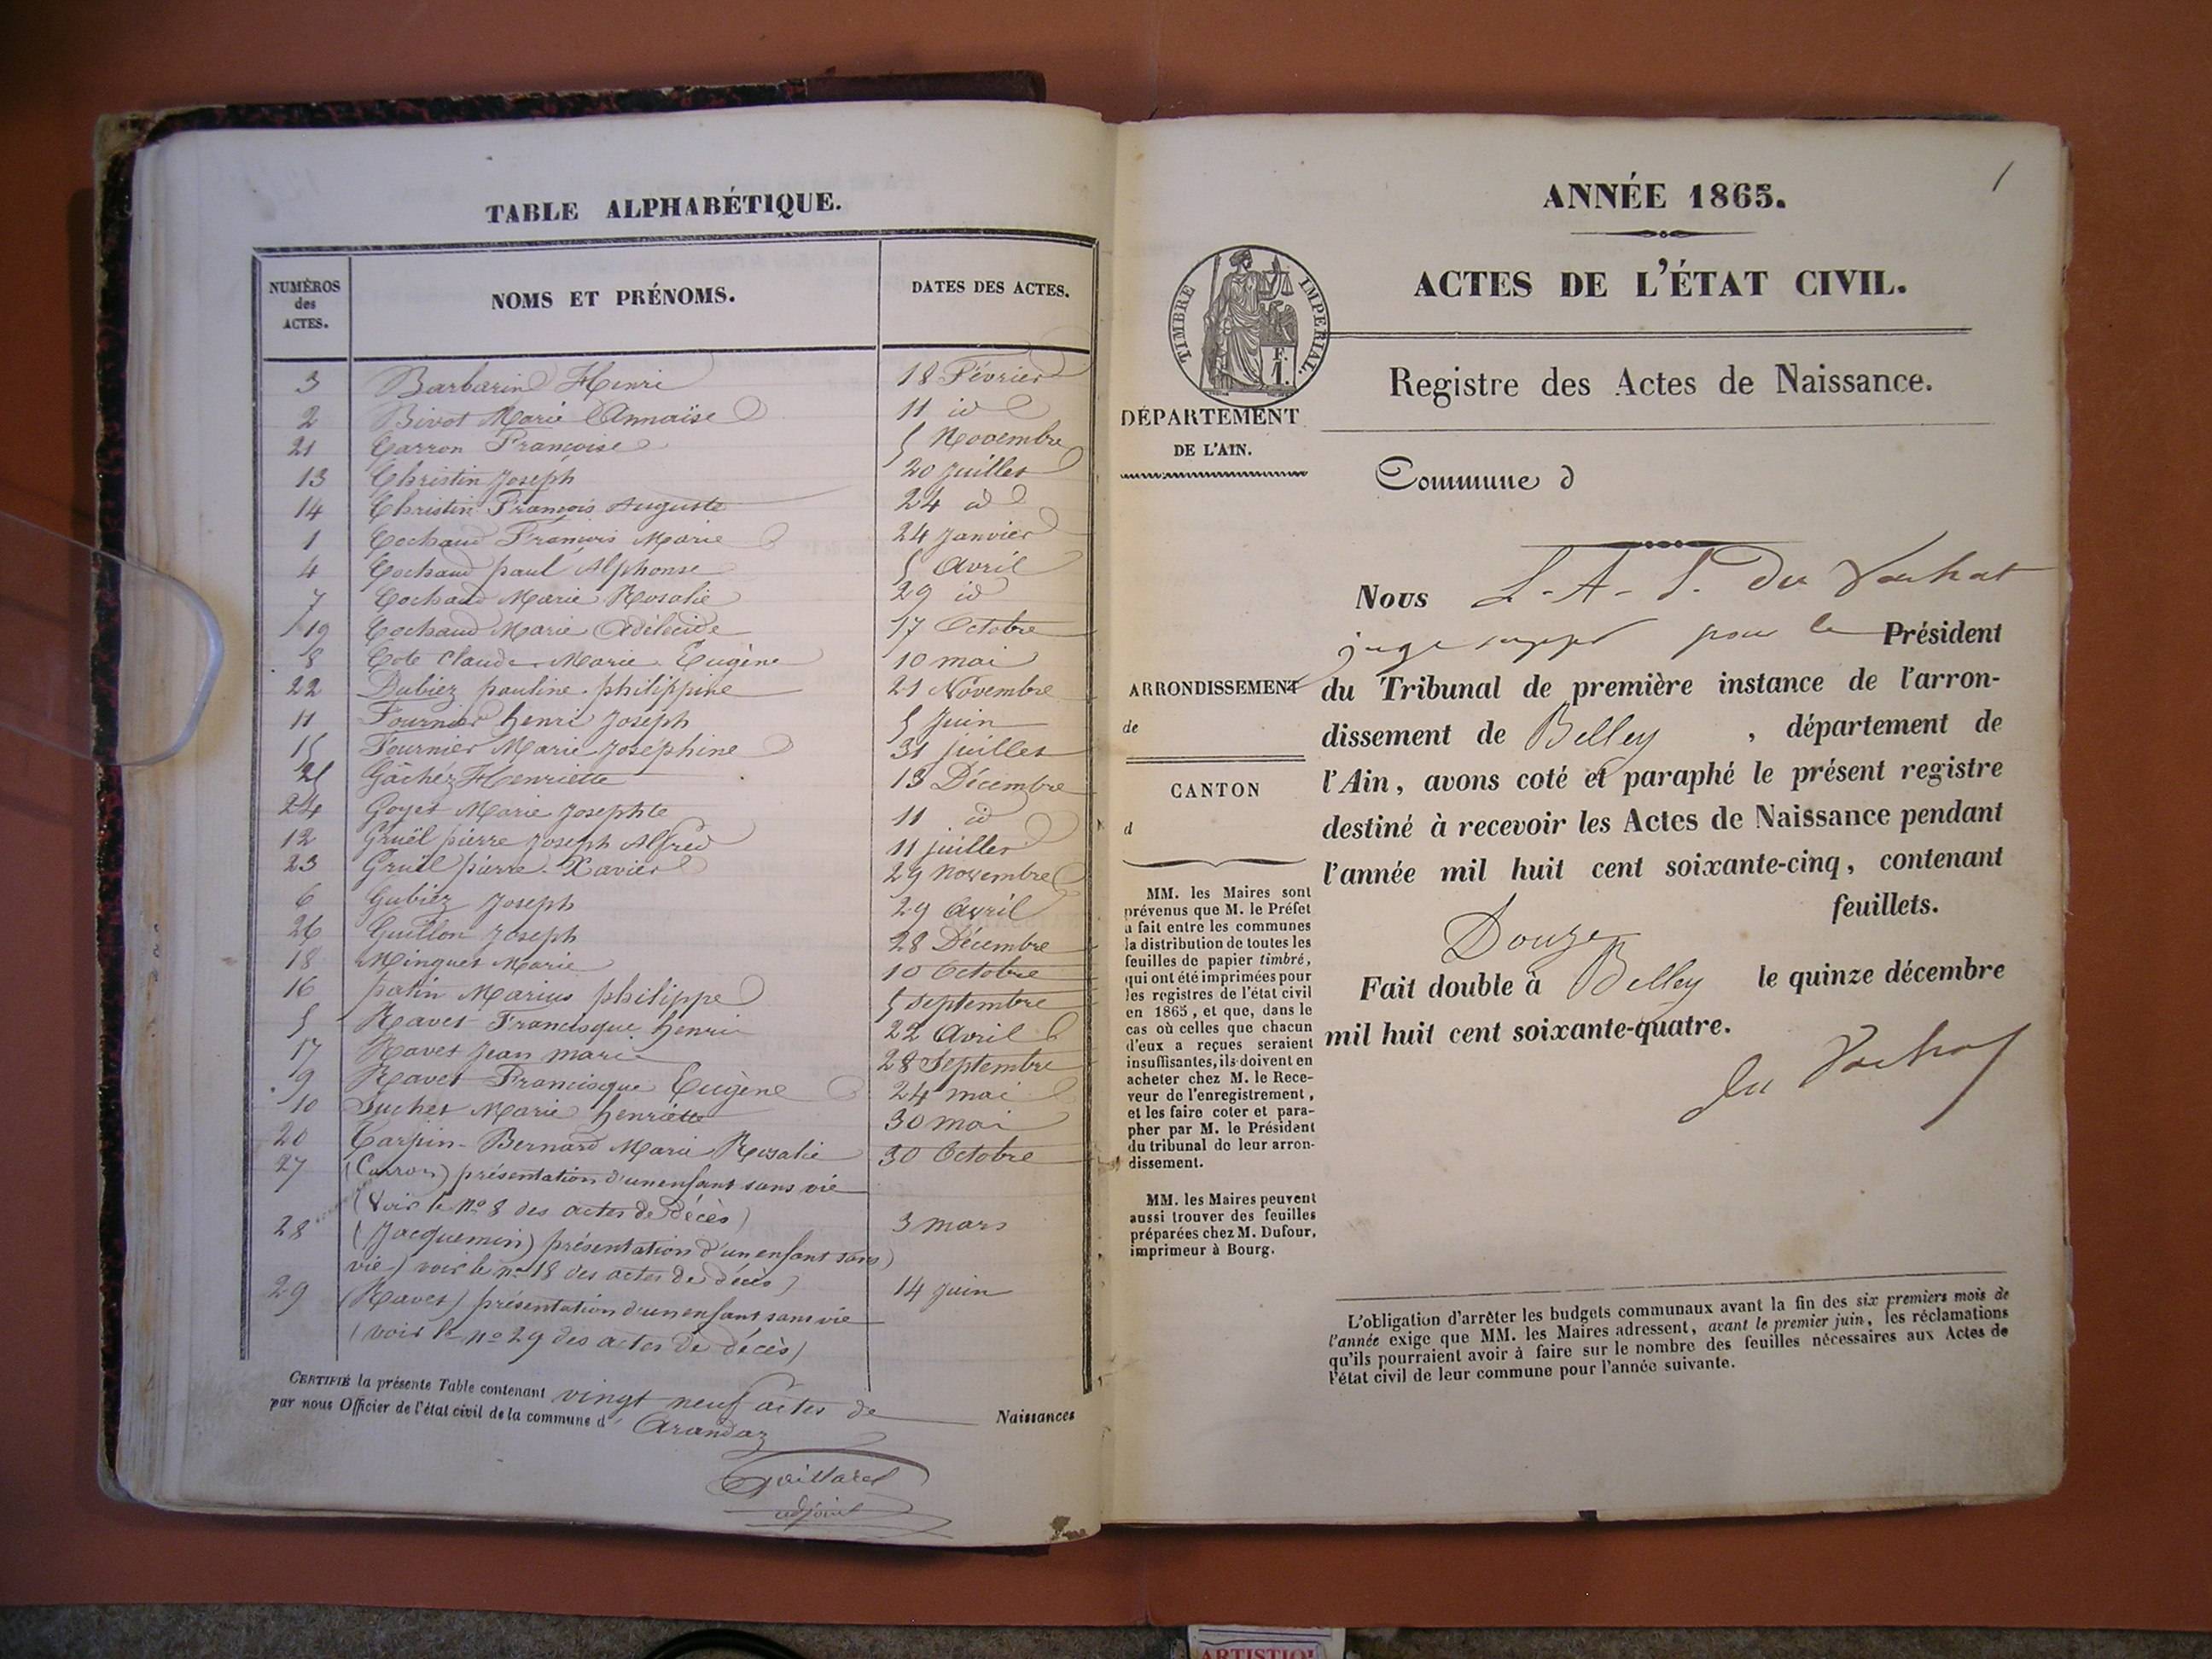 TABLE ALPHABÉTIQUE.
NUMÉROS des ACTES. NOMS ET PRÉNOMS. DATES DES ACTES.
3 Barbarin Henri 18 Février
2 Bivot Marie Annaïse 11 id
21 Carron Françoise 5 Novembre
13 Christin Joseph 20 juillet
14 Christin François Auguste 24 id
1 Cochaud François Marie 24 Janvier
4 Cochaud paul Alphonse 5 Avril
7 Cochaud Marie Rosalie 29 id
19 Cochaud Marie Adélaïde 17 Octobre
8 Cote Claude Marie Eugène 10 mai
22 Dubiez pauline philippine 21 Novembre
11 Fournier henri Joseph 5 Juin
15 Fournier Marie Joséphine 31 juillet
25 Gâchéz Henriette 13 Décembre
24 Goyet Marie Josephte 11 id
12 Gruël pierre Joseph Alfred 11 juillet
23 Gruël pierre Xavier 29 Novembre
6 Gubiez Joseph 29 Avril
26 Guillon Joseph 28 Décembre
18 Minguet Marie 10 Octobre
16 patin Marius philippe 5 septembre
5 Ravet Francisque henri 22 Avril
17 Ravet Jean marie 28 Septembre
9 Ravet Francisque Eugène 24 mai
10 Suchet Marie henriette 30 mai
20 Tarpin-Bernard Marie Rosalie 30 Octobre
27 (Carron) présentation d'un enfant sans vie
(Voir le No 8 des actes de décès) 3 mars
28 (Jacquemin) présentation d'un enfant sans
vie) voir le no 18 des actes de décès) 14 juin
29 (Ravet) présentation d'un enfant sans vie
(voir le no 29 des actes de décès)
CERTIFIÉ la présente Table contenant vingt neuf actes de Naissances
par nous Officier de l'état civil de la commune d' Arandaz
Gaillard
adjoint
1
ANNÉE 1865.
ACTES DE L'ÉTAT CIVIL.
TIMBRE IMPÉRIAL.
F.
1.
Registre des Actes de Naissance.
DÉPARTEMENT
DE L'AIN.
Commune d
Nous L-A-S. Du Vachat
juge suppt pour le Président
ARRONDISSEMENT
de
CANTON
d
du Tribunal de première instance de l'arron-
dissement de Belley, département de
l'Ain, avons coté et paraphé le présent registre
destiné à recevoir les Actes de Naissance pendant
l'année mil huit cent soixante-cinq, contenant
Douze feuillets.
Fait double à Belley le quinze décembre
mil huit cent soixante-quatre.
Du Vachat
MM. les Maires sont
prévenus que M. le Préfet
a fait entre les communes
la distribution de toutes les
feuilles de papier timbré,
qui ont été imprimées pour
les registres de l'état civil
en 1865, et que, dans le
cas où celles que chacun
d'eux a reçues seraient
insuffisantes, ils doivent en
acheter chez M. le Rece-
veur de l'enregistrement,
et les faire coter et para-
pher par M. le Président
du tribunal de leur arron-
dissement.
MM. les Maires peuvent
aussi trouver des feuilles
préparées chez M. Dufour,
imprimeur à Bourg.
L'obligation d'arrêter les budgets communaux avant la fin des six premiers mois de
l'année exige que MM. les Maires adressent, avant le premier juin, les réclamations
qu'ils pourraient avoir à faire sur le nombre des feuilles nécessaires aux Actes de
l'état civil de leur commune pour l'année suivante.